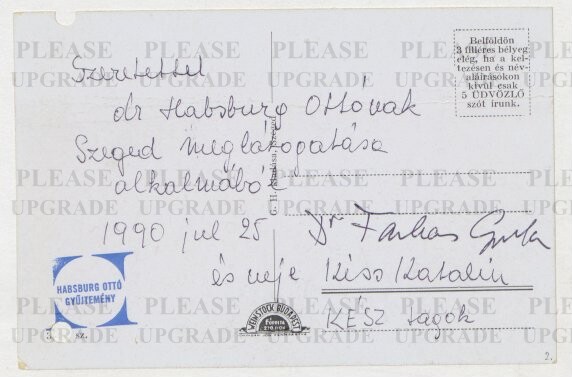 Belföldön
3 filléres bélyeg
elég, ha a kel-
tezésen és név-
aláirásokon
kivül csak
5 ÜDVÖZLŐ
szót irunk.
Szeretettel
dr Habsburg Ottónak
Szeged meglátogatása
alkalmából
1990 jul 25
Dr Farkas Gyula
és neje Kiss Katalin
KÉSZ tagok
HABSBURG OTTÓ
GYŰJTEMÉNY
sz.
WEINSTOCK BUDAPEST
2.
PLEASE UPGRADE PLEASE UPGRADE PLEASE UPGRADE PLEASE UPGRADE PLEASE UPGRADE